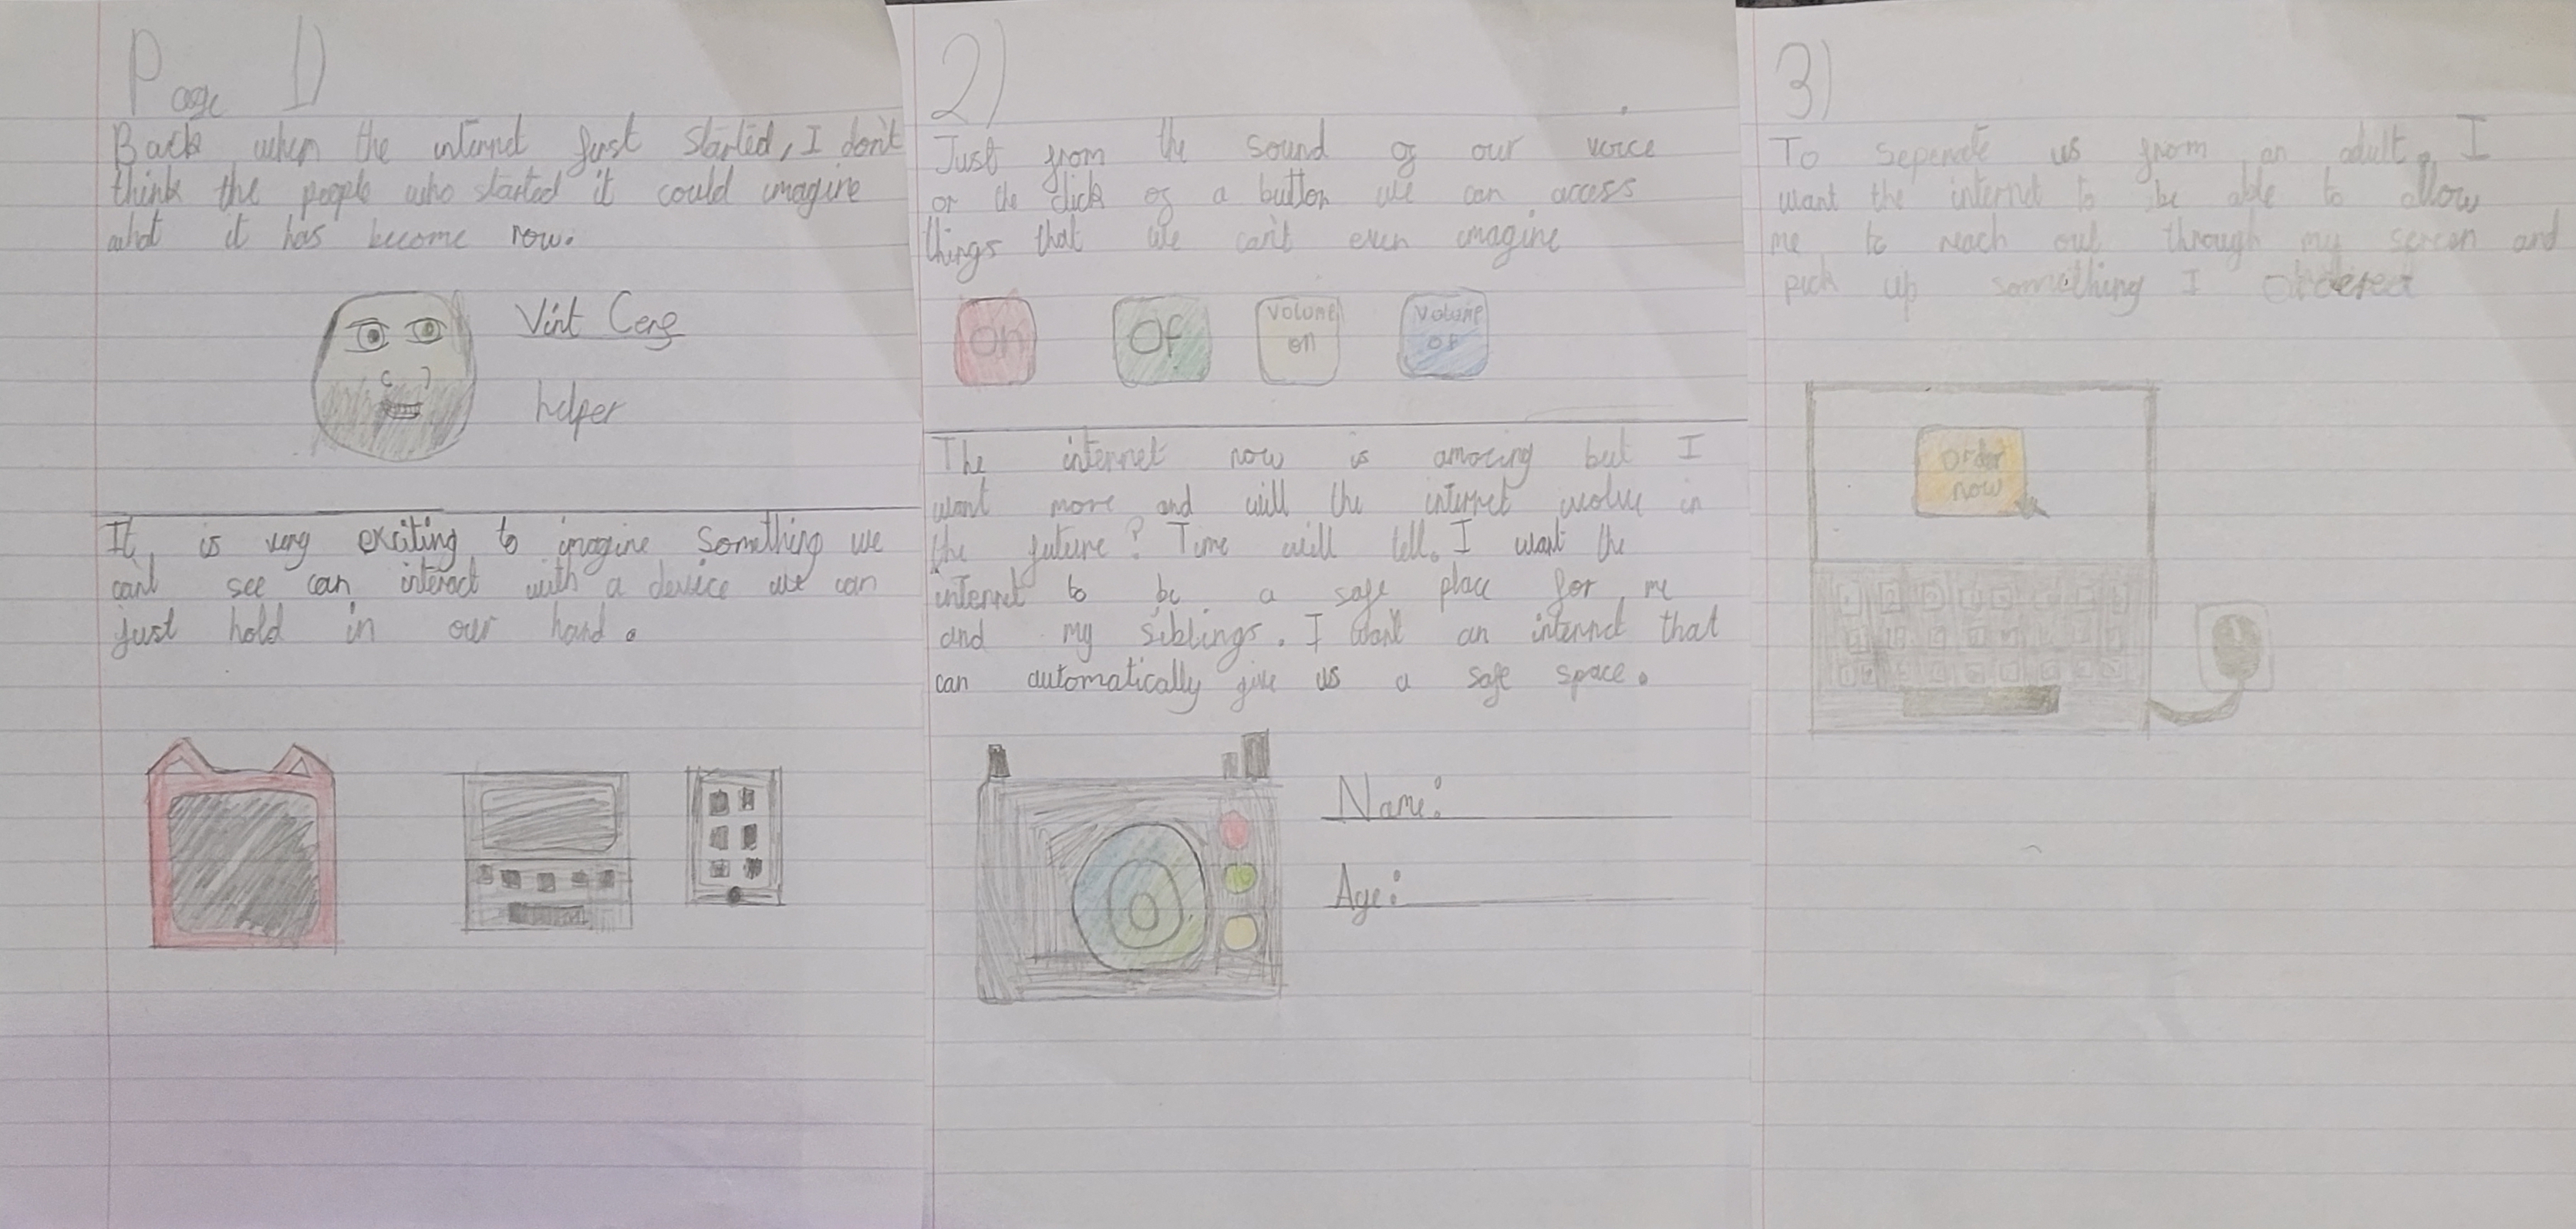 Page 1)
Back when the internet first started, I don't
think the people who started it could imagine
what it has become now.
Vint Cerf
helper
It is very exciting to imagine something we
can't see can interact with a device we can
just hold in our hand.
2)
Just from the sound of our voice
or the click of a button we can access
things that we can't even imagine
On
Of
Volume
on
Volume
of
The internet now is amazing but I
want more and will the internet evolve in
the future? Time will tell. I want the
internet to be a safe place for me
and my siblings. I want an internet that
can automatically give us a safe space.
Name:
Age:
3)
To seperate us from an adult, I
want the internet to be able to allow
me to reach out through my screen and
pick up something I ordered
Order
now